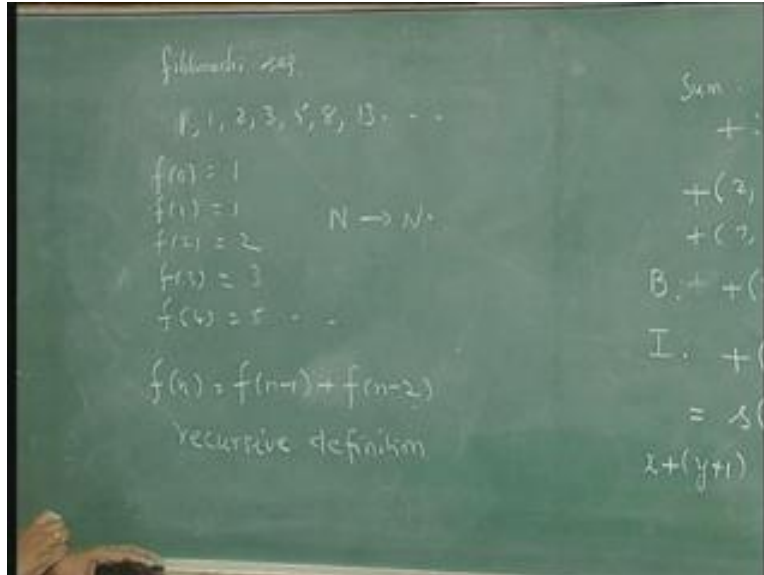 fibbonachi seq.
1, 1, 2, 3, 5, 8, 13 . . .
f(0) = 1
f(1) = 1
f(2) = 2
N → N.
f(3) = 3
f(4) = 5 . . .
f(n) = f(n-1) + f(n-2)
recursive definition
Sum
+ :
+(2,
+(
B. +(
I. +(
= s(
x+(y+1)